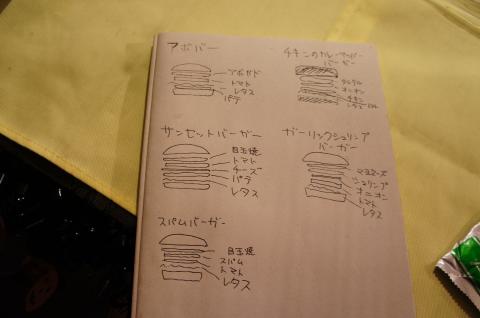 アボバー
アボカド
トマト
レタス
パテ
チキンのカレーペッパー
バーガー
オニオン
チキン
サンセットバーガー
目玉焼
トマト
チーズ
パテ
レタス
ガーリックシュリンプ
バーガー
マヨネーズ
シュリンプ
オニオン
トマト
レタス
スパムバーガー
目玉焼
スパム
トマト
レタス